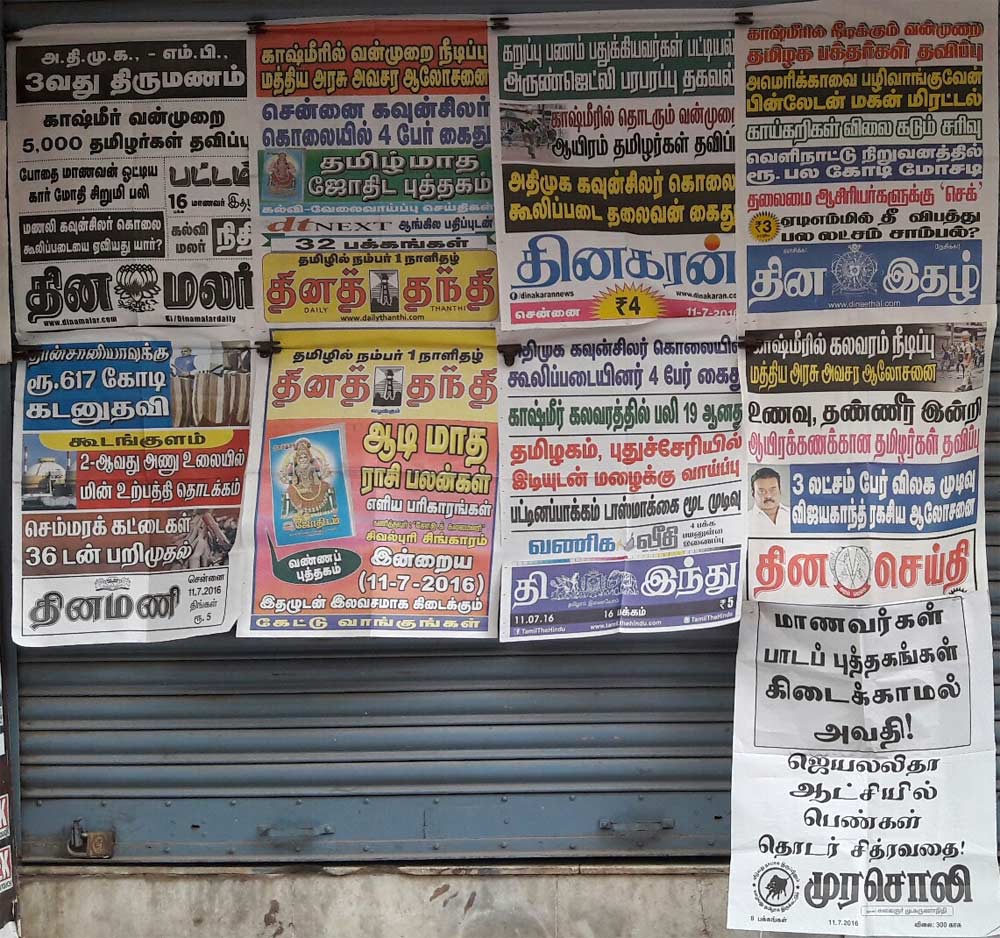 அ.தி.மு.க., - எம்.பி.,
3வது திருமணம்
காஷ்மீர் வன்முறை
5,000 தமிழர்கள் தவிப்பு
போதை மாணவன் ஓட்டிய
கார் மோதி சிறுமி பலி
மணலி கவுன்சிலர் கொலை
கூலிப்படையை ஏவியது யார்?
பட்டம்
16 மாணவர் இதழ்
கல்வி
மலர்
நிதி
தின மலர்
www.dinamalar.com
/Dinamalardaily
காஷ்மீரில் வன்முறை நீடிப்பு
மத்திய அரசு அவசர ஆலோசனை
சென்னை கவுன்சிலர்
கொலையில் 4 பேர் கைது
தமிழ்மாத
ஜோதிட புத்தகம்
கல்வி-வேலைவாய்ப்பு செய்திகள்
dtNEXT ஆங்கில பதிப்புடன்
32 பக்கங்கள்
தமிழில் நம்பர் 1 நாளிதழ்
தினத் தந்தி
DAILY THANTHI
www.dailythanthi.com
கறுப்பு பணம் பதுக்கியவர்கள் பட்டியல்
அருண்ஜெட்லி பரபரப்பு தகவல்
காஷ்மீரில் தொடரும் வன்முறை
ஆயிரம் தமிழர்கள் தவிப்பு
அதிமுக கவுன்சிலர் கொலை
கூலிப்படை தலைவன் கைது
தினகரன்
/dinakarannews
www.dinakaran.co
சென்னை
₹4
11-7-2016
காஷ்மீரில் நீடிக்கும் வன்முறை
தமிழக பக்தர்கள் தவிப்பு
அமெரிக்காவை பழிவாங்குவேன்
பின்லேடன் மகன் மிரட்டல்
காய்கறிகள் விலை கடும் சரிவு
வெளிநாட்டு நிறுவனத்தில்
ரூ. பல கோடி மோசடி
தலைமை ஆசிரியர்களுக்கு 'செக்'
₹3
ஏடிஎம்மில் தீ விபத்து
பல லட்சம் சாம்பல்?
தின இதழ்
www.dinaethal.com
தான்சானியாவுக்கு
ரூ.617 கோடி
கடனுதவி
கூடங்குளம்
2-ஆவது அணு உலையில்
மின் உற்பத்தி தொடக்கம்
செம்மரக் கட்டைகள்
36 டன் பறிமுதல்
தினமணி
சென்னை
11.7.2016
திங்கள்
ரூ. 5
தமிழில் நம்பர் 1 நாளிதழ்
தினத் தந்தி
வழங்கும்
ஆடி மாத
ராசி பலன்கள்
எளிய பரிகாரங்கள்
சிவல்புரி சிங்காரம்
ஜோதிடம்
வண்ணப்
புத்தகம்
இன்றைய
(11-7-2016)
இதழுடன் இலவசமாக கிடைக்கும்
கேட்டு வாங்குங்கள்
அதிமுக கவுன்சிலர் கொலையில்
கூலிப்படையினர் 4 பேர் கைது
காஷ்மீர் கலவரத்தில் பலி 19 ஆனது
தமிழகம், புதுச்சேரியில்
இடியுடன் மழைக்கு வாய்ப்பு
பட்டினப்பாக்கம் டாஸ்மாக்கை மூட முடிவு
வணிக வீதி
4 பக்க
இணைப்பு
தி இந்து
11.07.16
16 பக்கம்
₹5
TamilTheHindu
www.tamilthehindu.com
TamilTheHindu
காஷ்மீரில் கலவரம் நீடிப்பு
மத்திய அரசு அவசர ஆலோசனை
உணவு, தண்ணீர் இன்றி
ஆயிரக்கணக்கான தமிழர்கள் தவிப்பு
3 லட்சம் பேர் விலக முடிவு
விஜயகாந்த் ரகசிய ஆலோசனை
தின செய்தி
மாணவர்கள்
பாடப் புத்தகங்கள்
கிடைக்காமல்
அவதி!
ஜெயலலிதா
ஆட்சியில்
பெண்கள்
தொடர் சித்ரவதை!
முரசொலி
கலைஞர் மு.கருணாநிதி
8 பக்கங்கள்
11.7.2016
விலை: 300 காசு